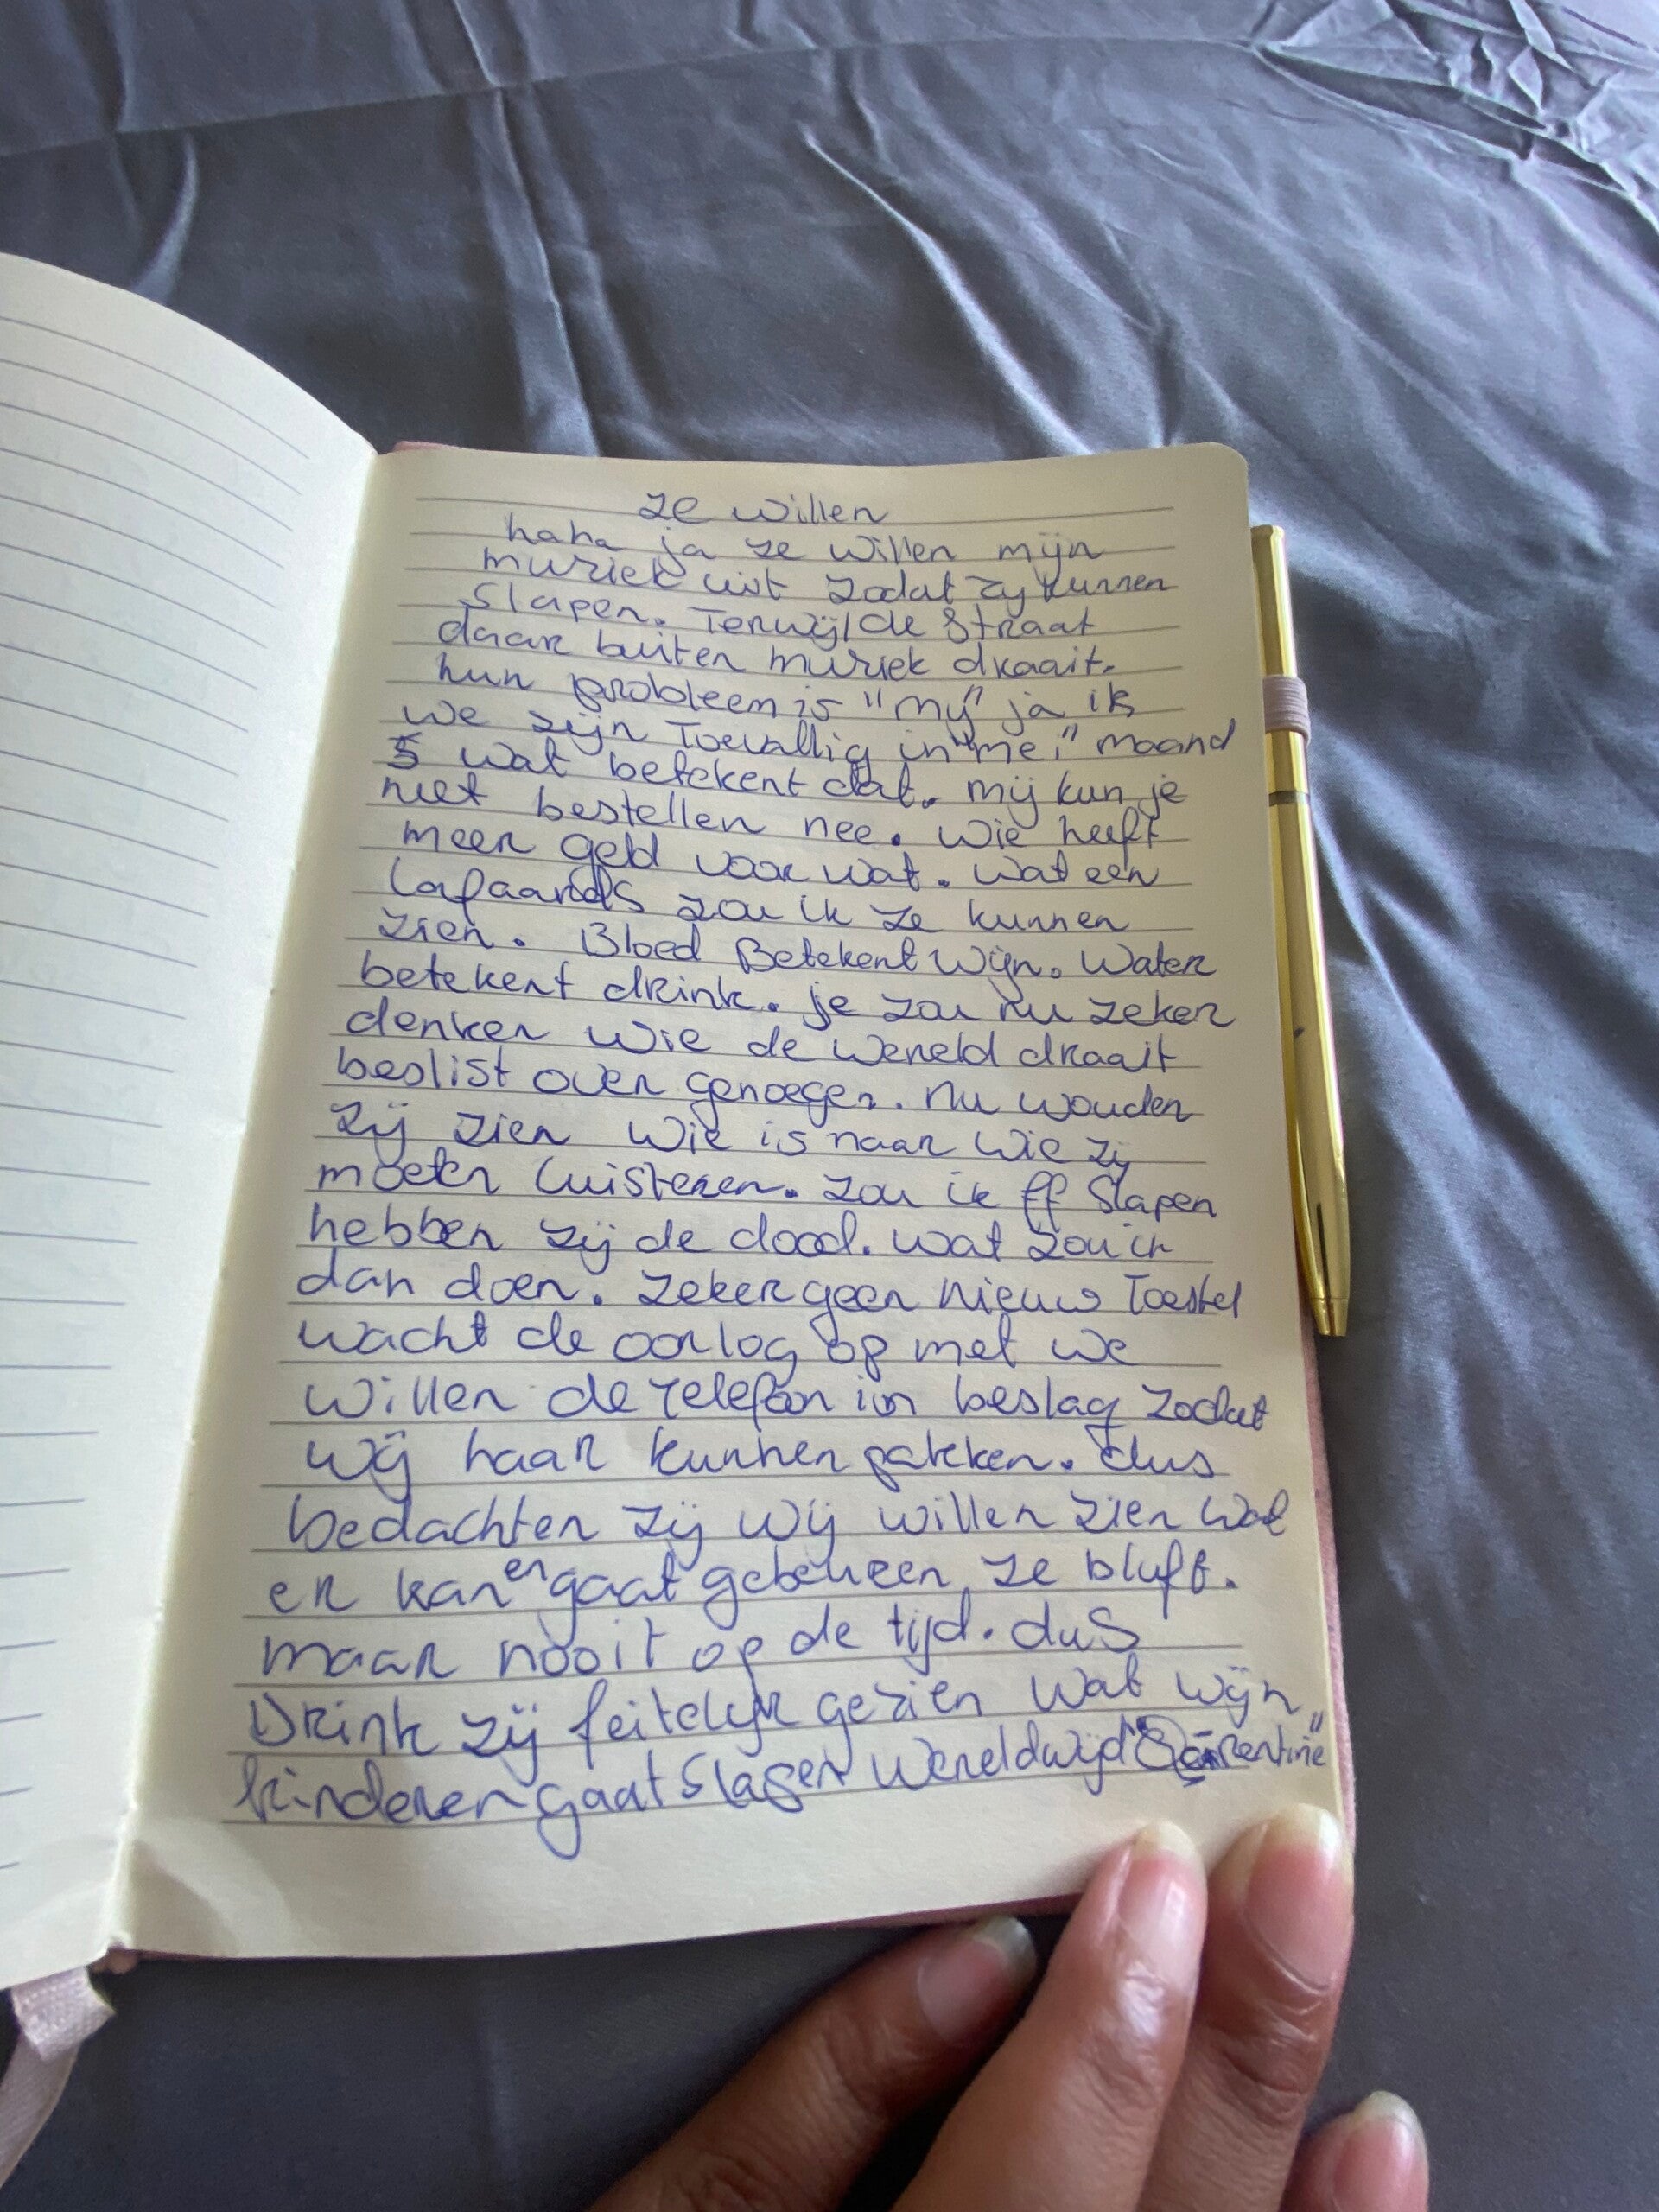 ze willen
haha ja ze willen mijn
muziek uit zodat zij kunnen
Slapen. Terwijl de straat
daar buiten muziek draait.
hun probleem is "mij" ja ik
we zijn Toevallig in "mei" maand
5 wat betekent dat. mij kun je
niet bestellen nee. wie heeft
meer geld voor wat. wat een
lafaards zou ik ze kunnen
zien. Bloed Betekent wijn. Water
betekent drink. je zou nu zeker
denken wie de wereld draait
beslist over genoegen. nu wouden
zij zien wie is naar wie zij
moeten luisteren. zou ik ff Slapen
hebben zij de dood. wat zou ik
dan doen. zeker geen nieuw Toestel
wacht de oorlog op met we
willen de Telefoon in beslag zodat
wij haar kunnen pakken. dus
bedachten zij wij willen zien wat
er kan en gaat gebeuren ze bluft.
maar nooit op de tijd. dus
Drink zij feitelijk gezien wat wijn
kinderen gaat slapen wereldwijd